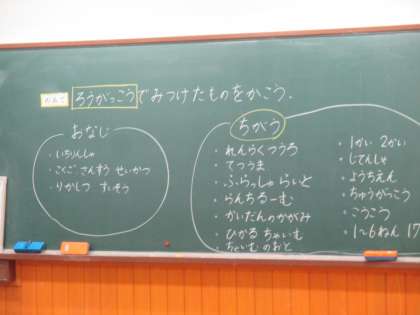 めあて ろうがっこうでみつけたものをかこう.
おなじ
・いちりんしゃ
・こくご さんすう せいかつ
・りかしつ すいそう
ちがう
・れんらくつうろ
・てつうま
・ふらっしゅらいと
・らんちるーむ
・かいだんのかがみ
・ひかる ちゃいむ
ちゃいむのおと
・1かい 2かい
・じてんしゃ
・ようちえん
・ちゅうがっこう
・こつこつ
・1〜6ねん 17